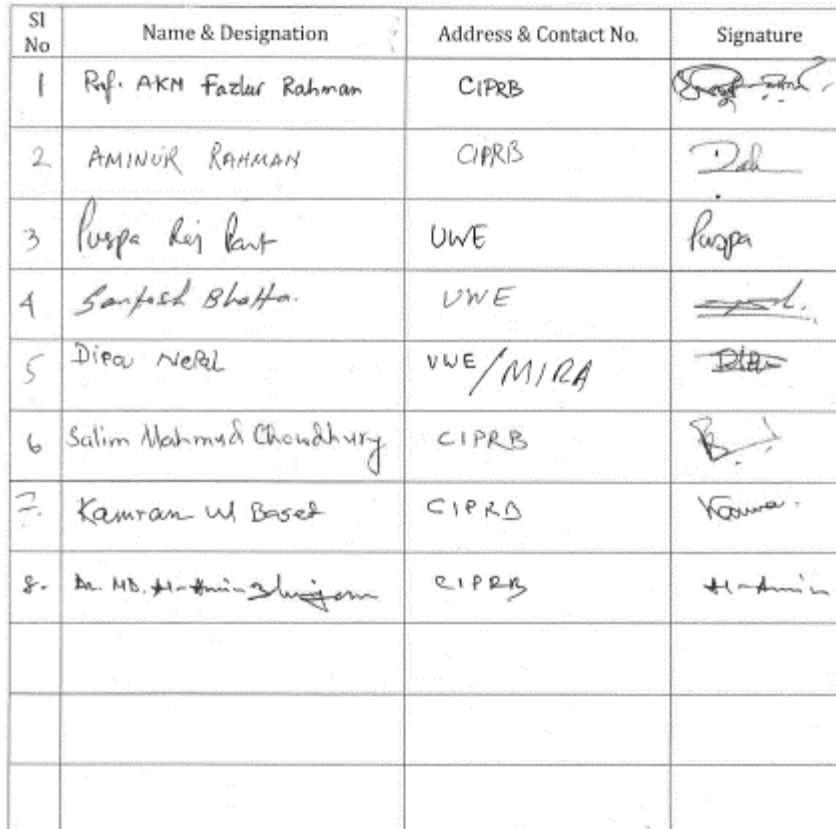 Sl No Name & Designation Address & Contact No. Signature
1 Prof. AKM Fazlur Rahman CIPRB
2 AMINUR RAHMAN CIPRB
3 Puspa Raj Pant UWE Puspa
4 Santosh Bhatta. UWE
5 Dipa Nepal UWE/MIRA
6 Salim Mahmud Chowdhury CIPRB
7. Kamran Ul Baset CIPRB
8. Dr. MD. Al-Amin Bhuiyan CIPRB Al-Amin